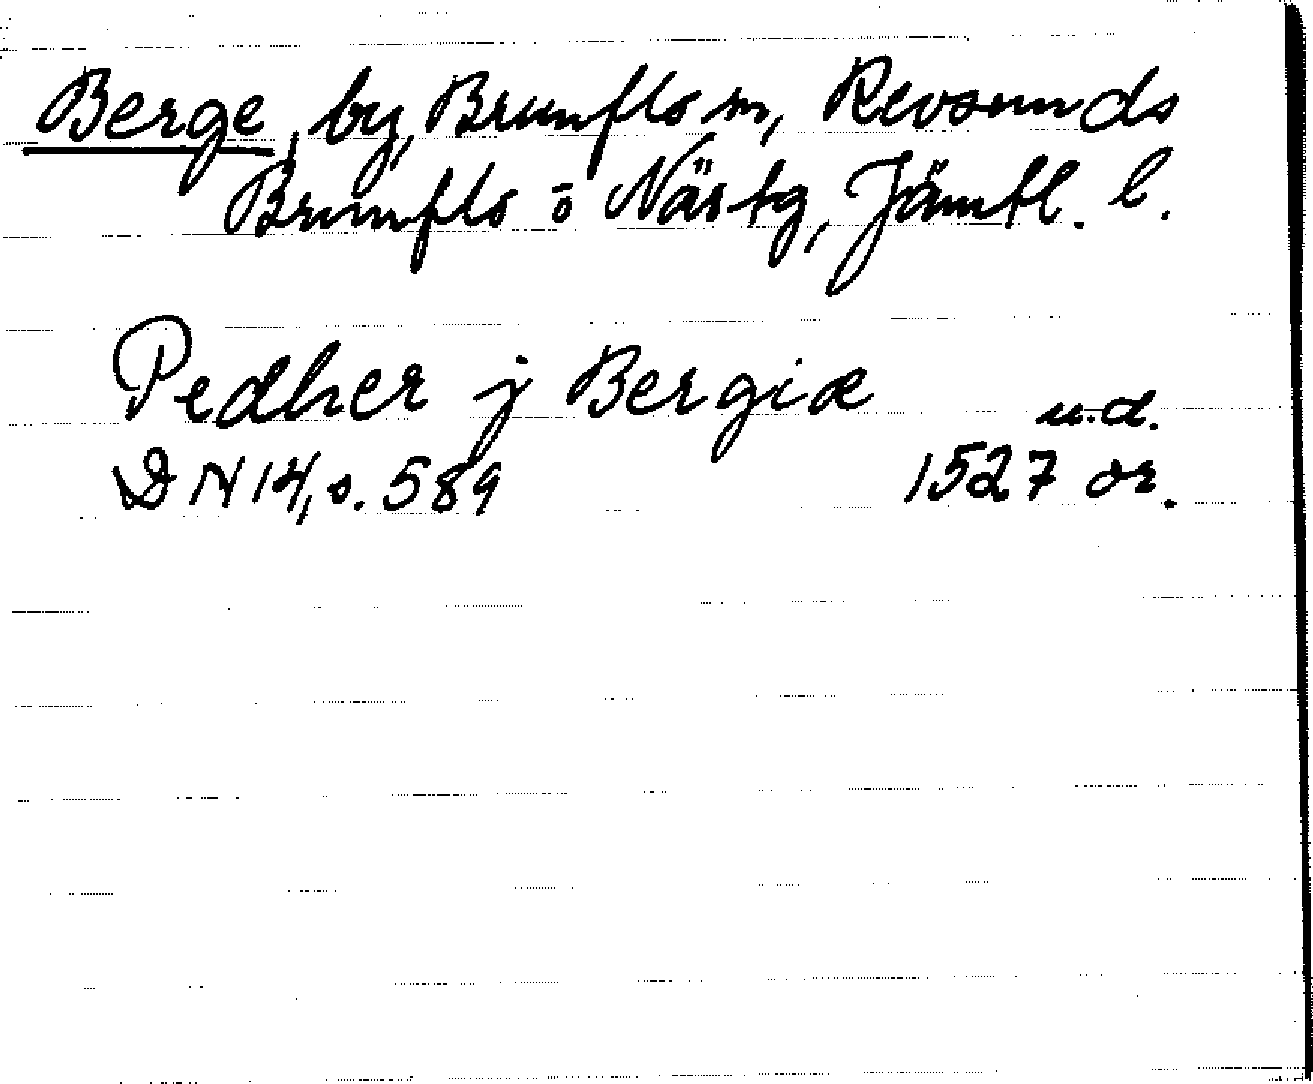 Berge, by, Brunflo sn, Revsunds
Brunflo o Näs tg, Jämtl. l.
Pedher j Bergiæ u.d.
DN 14, s. 589 1527 or.